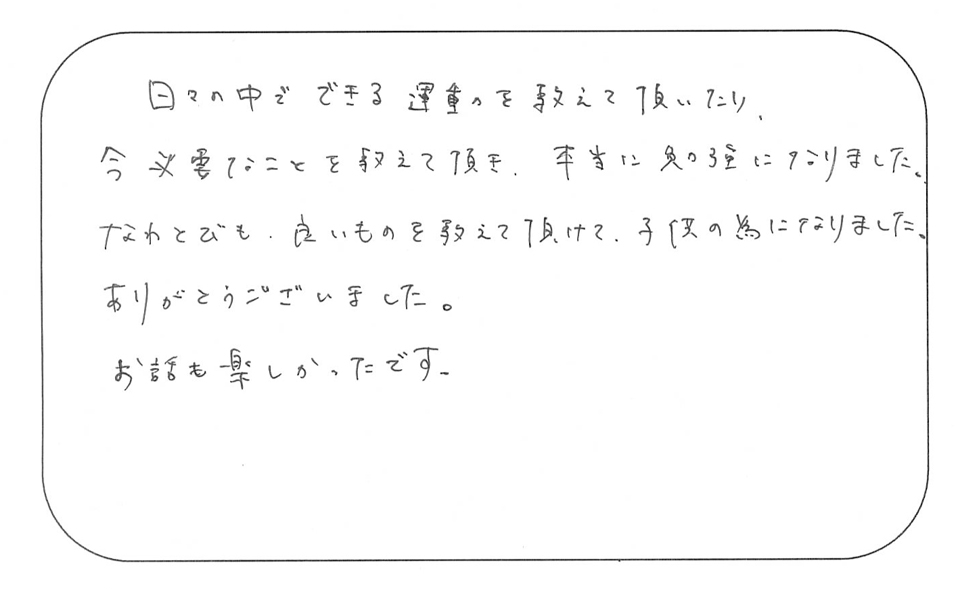 日々の中でできる運動を教えて頂いたり、
今必要なことを教えて頂き、本当に勉強になりました。
なわとびも、良いものを教えて頂けて、子供の為になりました。
ありがとうございました。
お話も楽しかったです。